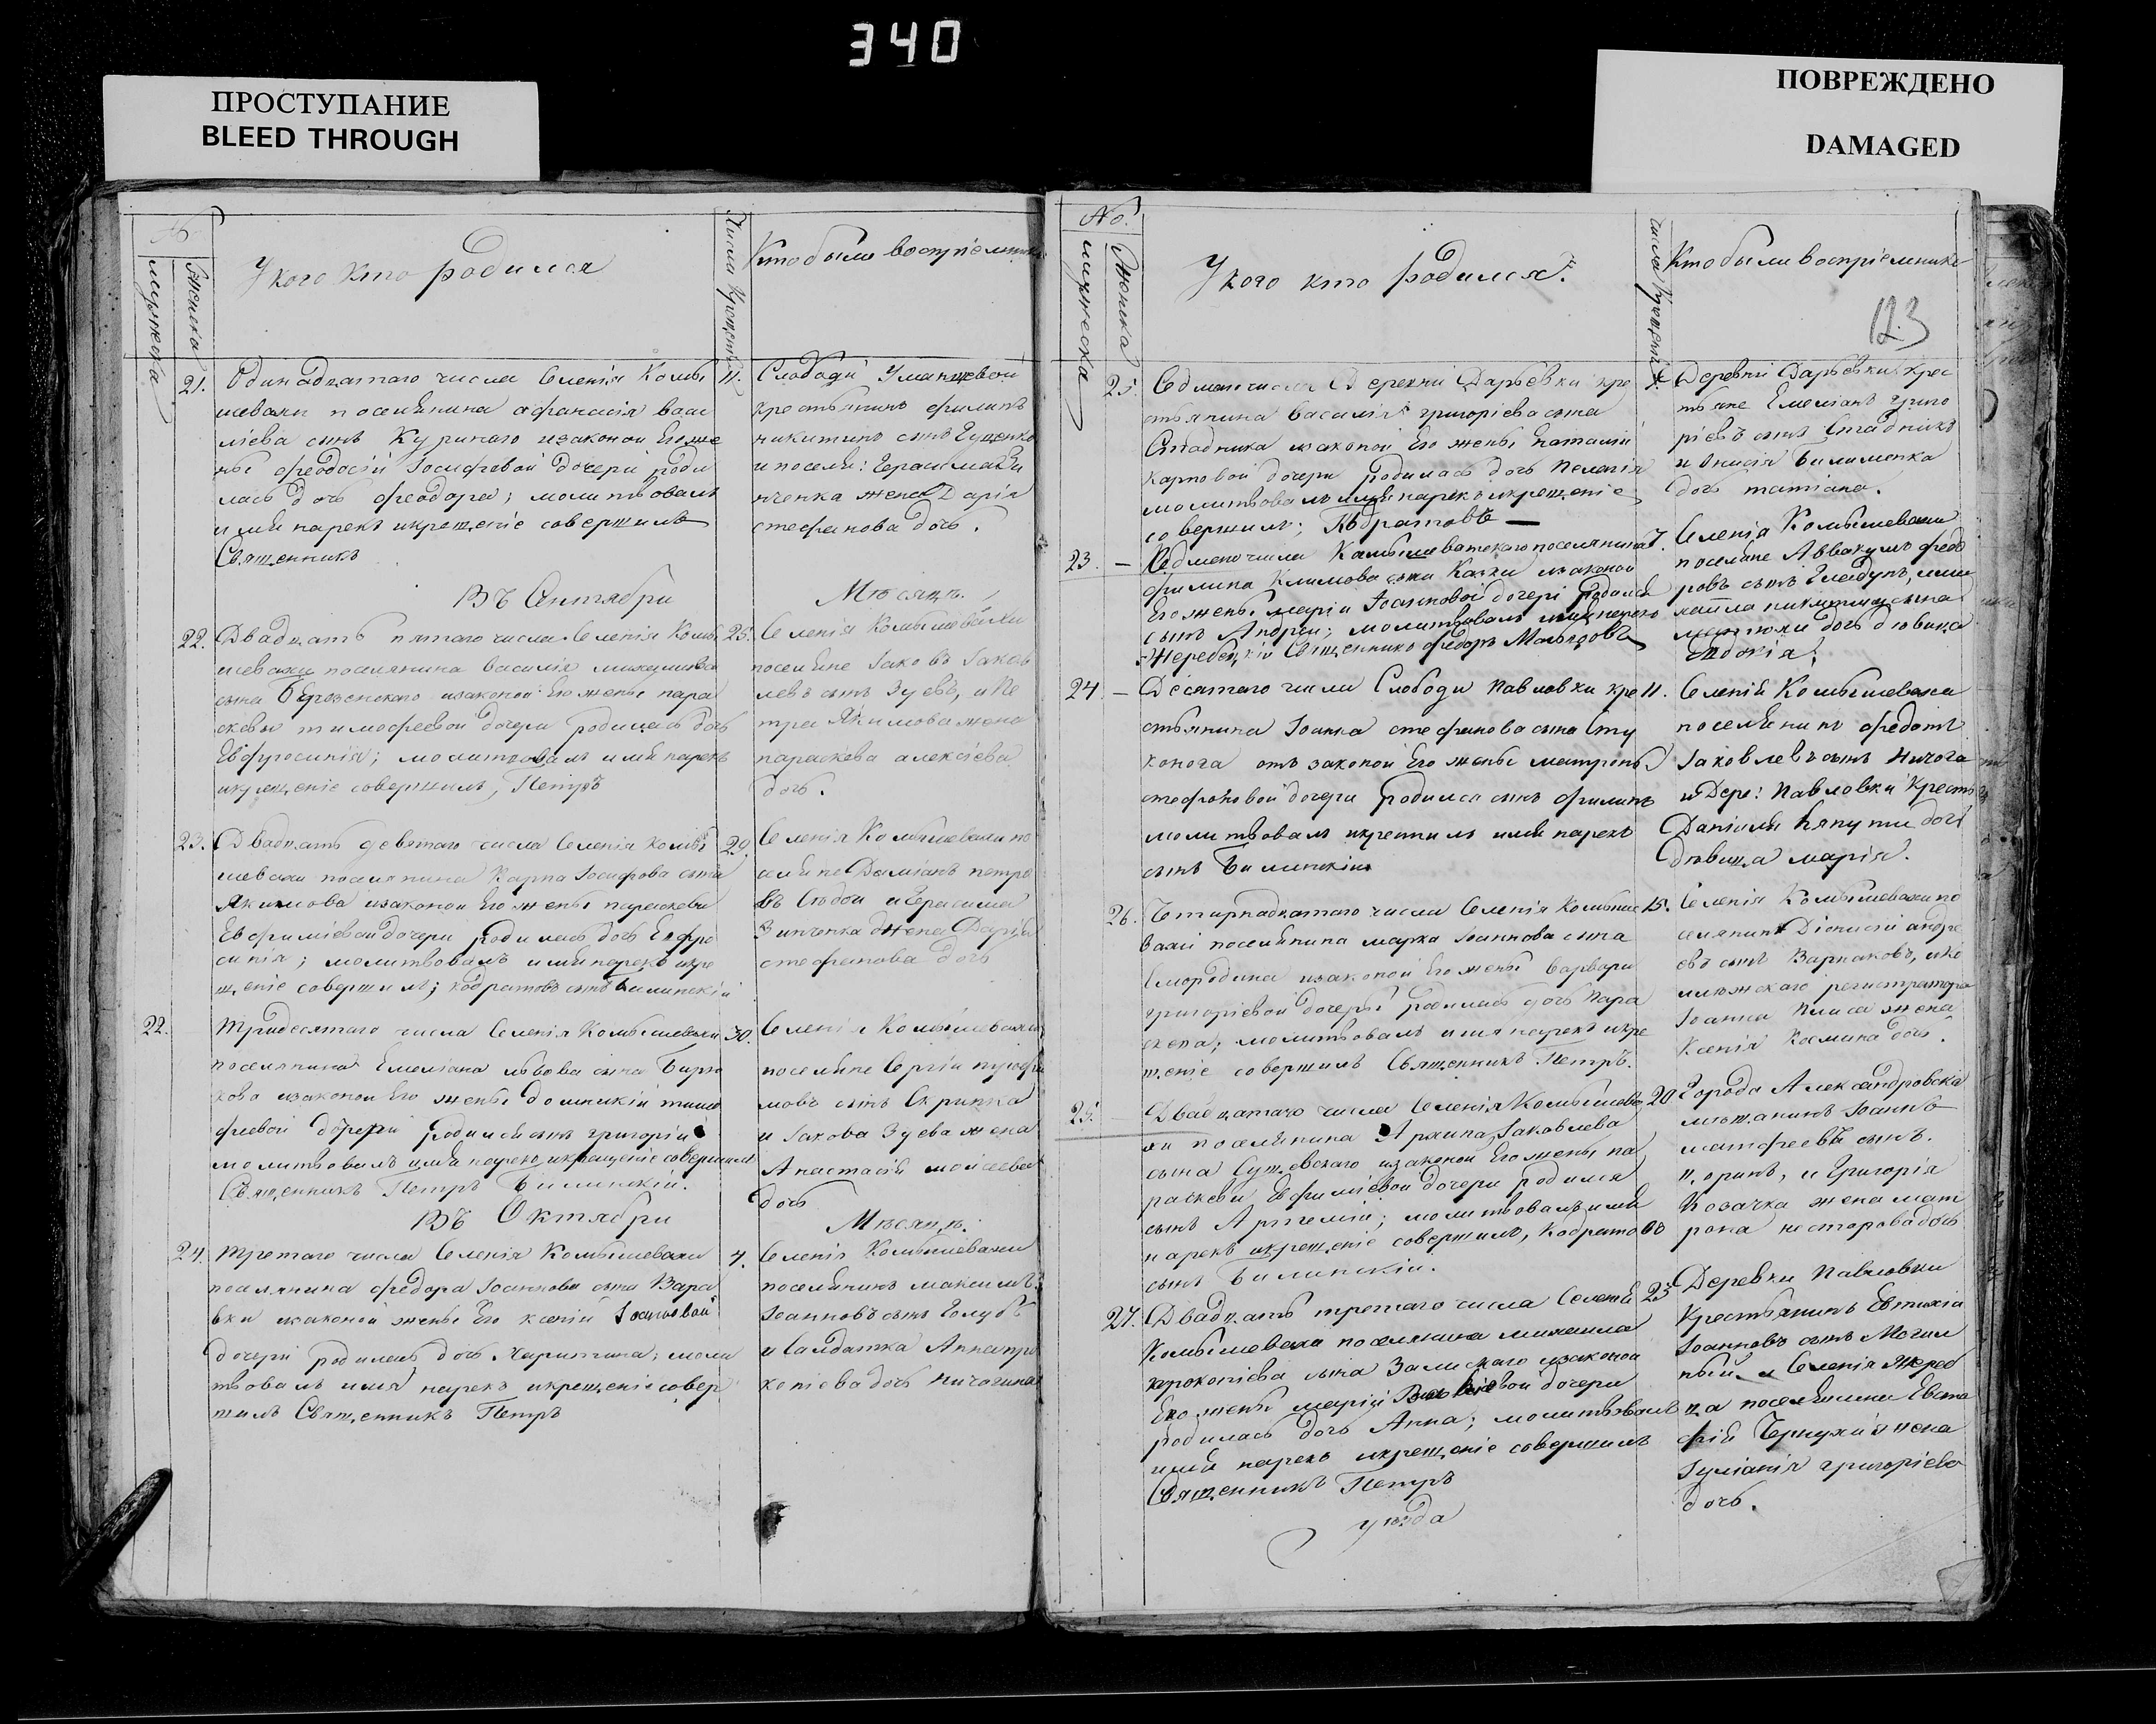 340
ПРОСТУПАНИЕ
BLEED THROUGH
ПОВРЕЖДЕНО
DAMAGED
№
мужеска
женска
У кого кто родился
Числа крещения
Кто были воспріемники
21.
Одинадцатаго числа Селенія Комы
шевахи поселянина Афанасія Васи
ліева сынъ Куринаго изаконои Его же
ны Феодосіи Іосифовой дочери роди
лась дочь Феодора; молитвовалъ
имя нарекъ икрещеніе совершилъ
Священникъ
11.
Слободи
крестьянинъ Филипъ
никитинъ сынъ Гуценко
и посел: Герасима
женка жена Дарія
стефанова дочь.
Въ Сентябри
Мѣсяцѣ.
22.
Двадцать пятаго числа Селенія Комы
шевахи поселянина Василія
сына изаконой Его жены пара
скевы тимофеевой дочери родилась дочь
Евфросинія; молитвовалъ имя нарекъ
икрещеніе совершилъ, Петръ
25.
Селенія Комышевахи
поселяне Іаковъ Іаков
левъ сынъ Зуевъ, и Пе
тра Якимова жена
параскева алексіева
дочь.
23.
Двадцать девятаго числа Селенія Комы
шевахи поселянина Карпа Іосифова сына
Якимова изаконои Его жены параскевы
Евфиміевой дочери родилась дочь Евфро
синія; молитвовалъ имя нарекъ икре
щеніе совершилъ; Кодратовъ сынъ Билинскій
29.
Селенія Комышевахи по
селяне Даміанъ петро
въ и Герасима
Зинченка жена Дарія
стефанова дочь
22.
Тридесятаго числа Селенія Комышевахи
поселянина Емеліана Львова сына Бирю
кова изаконои Его жены домникіи тимо
феевой дочери родился сынъ григорій
молитвовалъ имя нарекъ икрещеніе совершилъ
Священникъ Петръ Билинскій.
30.
Селенія Комышевахи
поселяне Сергій трофи
мовъ сынъ Скрипка
и Іакова Зуева жена
Анастасія моисеева
дочь
Въ Октябри
Мѣсяцѣ.
24.
Третаго числа Селенія Комышевахи
поселянина Федора Іоаннова сына Вара
вки изаконой жены Его ксеніи
дочери родилась дочь Харитина; моли
твовалъ имя нарекъ икрещеніе совер
шилъ Священникъ Петръ
4.
Селенія Комышевахи
поселянинъ максимъ
Іоанновъ сынъ Голубъ
и Салдатка Анна про
копіева дочь Ничогина
№.
мужеска
Женска
У кого кто родился.
числа крещения
Кто были воспріемники
123
25.
Седмаго числа Деревни Дарьевки кре
стьянина Василія григоріева сына
Стадника изаконой Его жены Наталіи
карповой дочери родилась дочь Пелагія
молитвовалъ имя нарекъ икрещеніе
совершилъ; Кодратовъ
Деревни Дарьевки крес
тьяне Емеліанъ григо
ріевъ сынъ Стадникъ
и Онисія Билименка
дочь татіана.
23.
Седмаго числа Камышеватскаго поселянина
филипа Климова сына Качки изаконой
Его жены Маріи Іоанновой дочери родился
сынъ Андрей; молитвовалъ имя нарекъ
Жеребецкій Священникъ Федоръ
7.
Селенія Комышевахи
поселяне Аввакумъ федо
ровъ сынъ
хаила никитина сына
дочь дѣвица
Евдокія.
24
Десятаго числа Слободи Павловки кре
стьянина Іоанна стефанова сына Сту
конога отъ законой Его жены матроны
стефановой дочери родился сынъ филипъ
молитвовалъ икрестилъ имя нарекъ
сынъ Билинскій
11.
Селенія Комышеваха
поселянинъ Федотъ
Іаковлевъ сынъ Ничога
и Дере: Павловки Крестья
Даніила дочь
дѣвица марія.
26.
Четирнадцатаго числа Селенія Комыше
вахи поселянина марка Іоаннова сына
Смородина изаконой Его жены Варвари
григоріевой дочери родилась дочь Пара
скева; молитвовалъ имя нарекъ икре
щеніе совершилъ Священникъ Петръ.
15.
Селенія Комышевахи по
селянинъ Діонисій андре
евъ сынъ Варнаковъ, и Ко
лежскаго регистратора
Іоанна жена
Ксенія Космина дочь.
25.
Двадцатаго числа Селенія Комышева
хи поселянина Архипа Іаковлева
сына изаконой Его жены па
раскеви Евфиміевой дочери родился
сынъ Артемій; молитвовалъ имя
нарекъ икрещеніе совершилъ, Кодратовъ
сынъ Билинскій.
20
Города Александровска
мещанинъ Іоаннъ
матфеевъ сынъ.
и Григорія
Козачка жена мат
рона несторова дочь
27.
Двадцать третаго числа Селенія
Комышеваха поселянина михаила
прокопіева сына Залискаго изаконой
Его жены маріи дочери
родилась дочь Анна; молитвовалъ
имя нарекъ икрещеніе совершилъ
Священникъ Петръ
уѣзда
25
Деревни Павловки
Крестьянинъ Евтихій
Іоанновъ сынъ Могил
ный, и Селенія Жереб
ца поселянина Евста
фія Чернухи жена
Іуліанія григоріева
дочь.